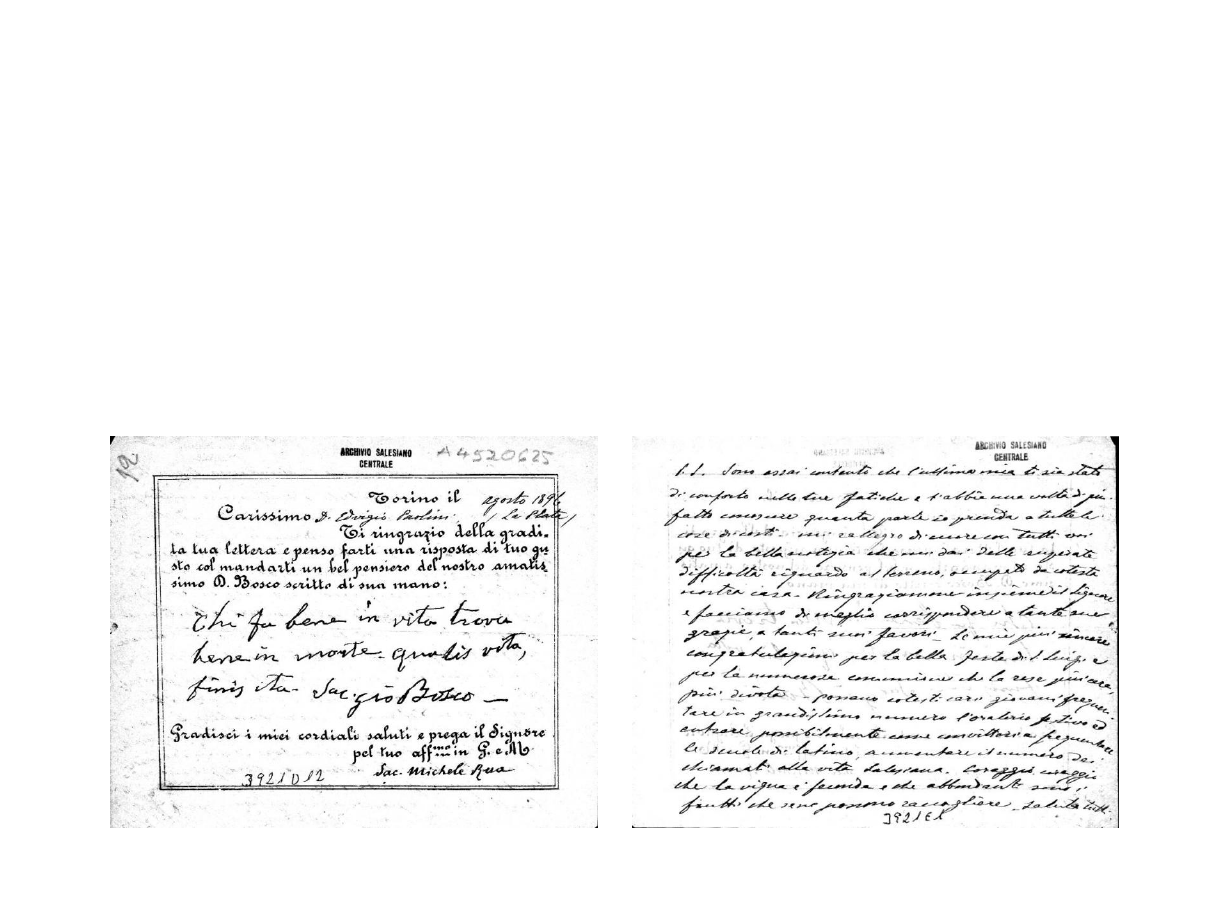 12
ARCHIVIO SALESIANO
CENTRALE
A4520625
Torino il agosto 1896
Carissimo D. Evigio Paolini (La Plata)
Ti ringrazio della gradi-
ta tua lettera e penso farti una risposta di tuo gu
sto col mandarti un bel pensiero del nostro amatis
simo D. Bosco scritto di sua mano:
Chi fa bene in vita trova
bene in morte. Qualis vita,
finis ita. Sac. Gio Bosco
Gradisci i miei cordiali saluti e prega il Signore
pel tuo aff.mo in G. e M.
Sac. Michele Rua
3921D12
ARCHIVIO SALESIANO
CENTRALE
Sono assai contento che l'ultima mia ti sia stata
di conforto nelle tue fatiche e t'abbia una volta di più
fatto conoscere quanta parte io prenda a tutte le
cose di costì. mi rallegro di cuore con tutti voi
per la bella notizia che mi dai delle superate
difficoltà riguardo al terreno, occupato da cotesta
nostra casa. Ringraziamone insieme il Signore
e facciamo di meglio corrispondere a tante sue
grazie, a tanti suoi favori. Le mie più sincere
congratulazioni per la bella festa di S. Luigi e
per la numerosa comunione che la rese più cara,
più divota. possano cotesti cari giovani frequen-
tare in grandissimo numero l'oratorio festivo ed
entrare possibilmente come convittori a frequentare
le scuole di latino, aumentare il numero dei
chiamati alla vita salesiana. Coraggio coraggio
che la vigna è feconda e che abbondanti sono i
frutti che se ne possono raccogliere. Saluta tutti
3921E1